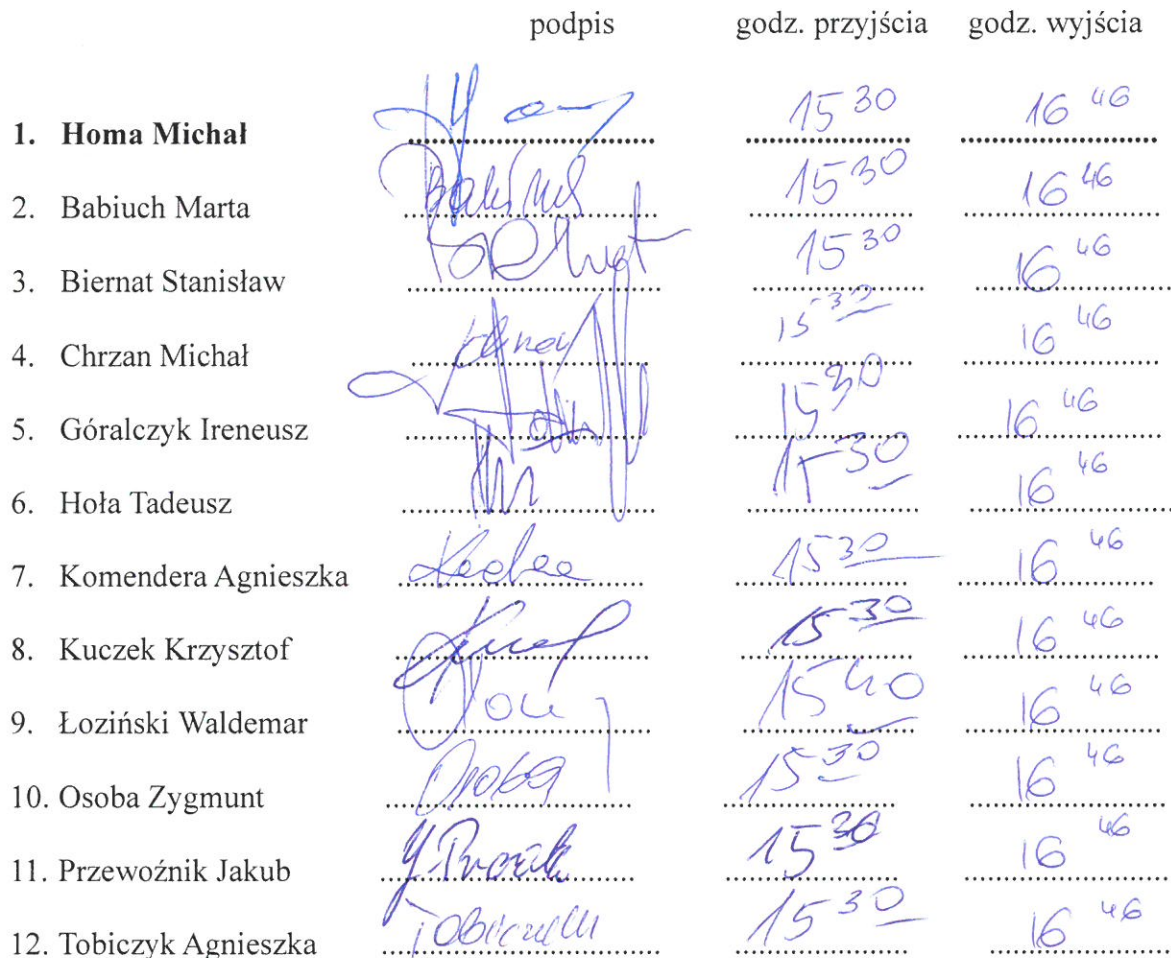 podpis godz. przyjścia godz. wyjścia
1. Homa Michał 15 30 16 46
2. Babiuch Marta 15 30 16 46
3. Biernat Stanisław 15 30 16 46
4. Chrzan Michał 15 30 16 46
5. Góralczyk Ireneusz 15 30 16 46
6. Hoła Tadeusz 15 30 16 46
7. Komendera Agnieszka 15 30 16 46
8. Kuczek Krzysztof 15 30 16 46
9. Łoziński Waldemar 15 40 16 46
10. Osoba Zygmunt Osoba 15 30 16 46
11. Przewoźnik Jakub 15 30 16 46
12. Tobiczyk Agnieszka 15 30 16 46